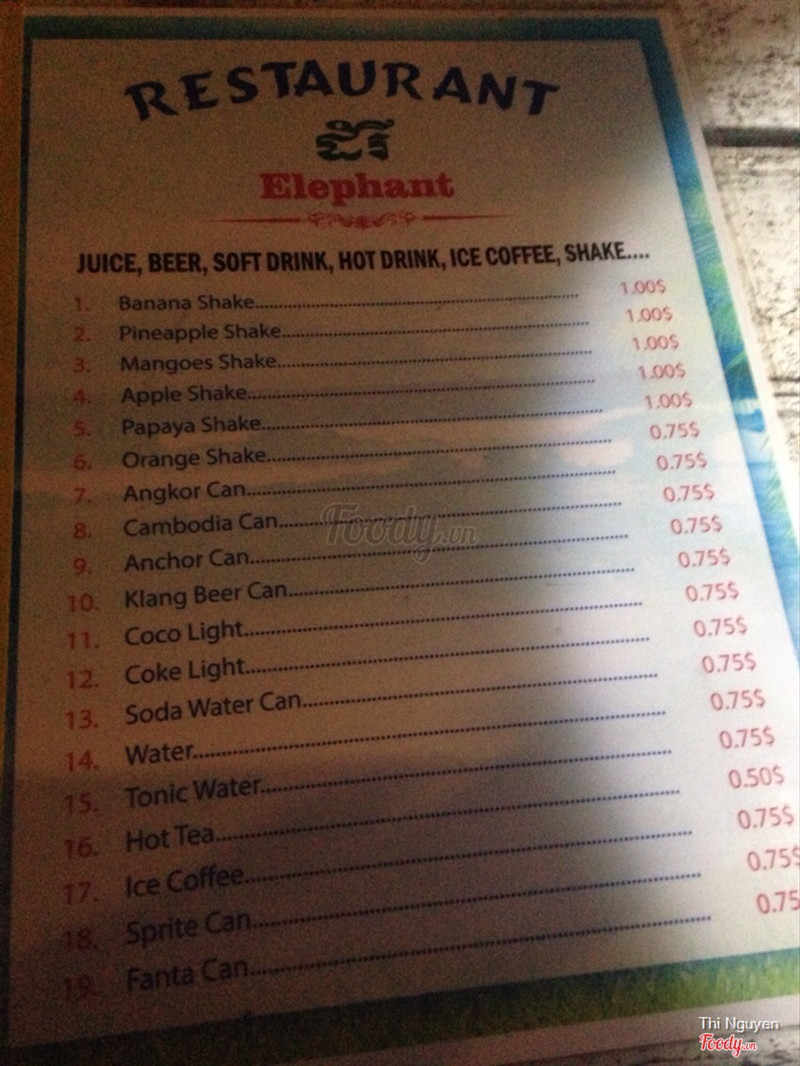 RESTAURANT
ដំរី
Elephant
JUICE, BEER, SOFT DRINK, HOT DRINK, ICE COFFEE, SHAKE....
1. Banana Shake 1.00$
2. Pineapple Shake 1.00$
3. Mangoes Shake 1.00$
4. Apple Shake 1.00$
5. Papaya Shake 1.00$
6. Orange Shake 0.75$
7. Angkor Can 0.75$
8. Cambodia Can 0.75$
9. Anchor Can 0.75$
10. Klang Beer Can 0.75$
11. Coco Light 0.75$
12. Coke Light 0.75$
13. Soda Water Can 0.75$
14. Water 0.75$
15. Tonic Water 0.75$
16. Hot Tea 0.50$
17. Ice Coffee 0.75$
18. Sprite Can 0.75$
19. Fanta Can 0.75
Foody.vn
Thi Nguyen
Foody.vn